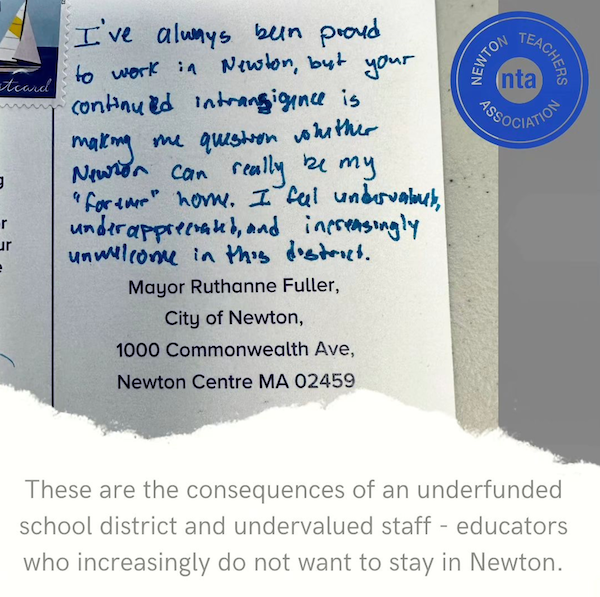 I've always been proud
to work in Newton, but your
continued intransigence is
making me question whether
Newton can really be my
"forever" home. I feel undervalued,
underappreciated, and increasingly
unwelcome in this district.
Mayor Ruthanne Fuller,
City of Newton,
1000 Commonwealth Ave,
Newton Centre MA 02459
NEWTON TEACHERS
nta
ASSOCIATION
These are the consequences of an underfunded
school district and undervalued staff - educators
who increasingly do not want to stay in Newton.